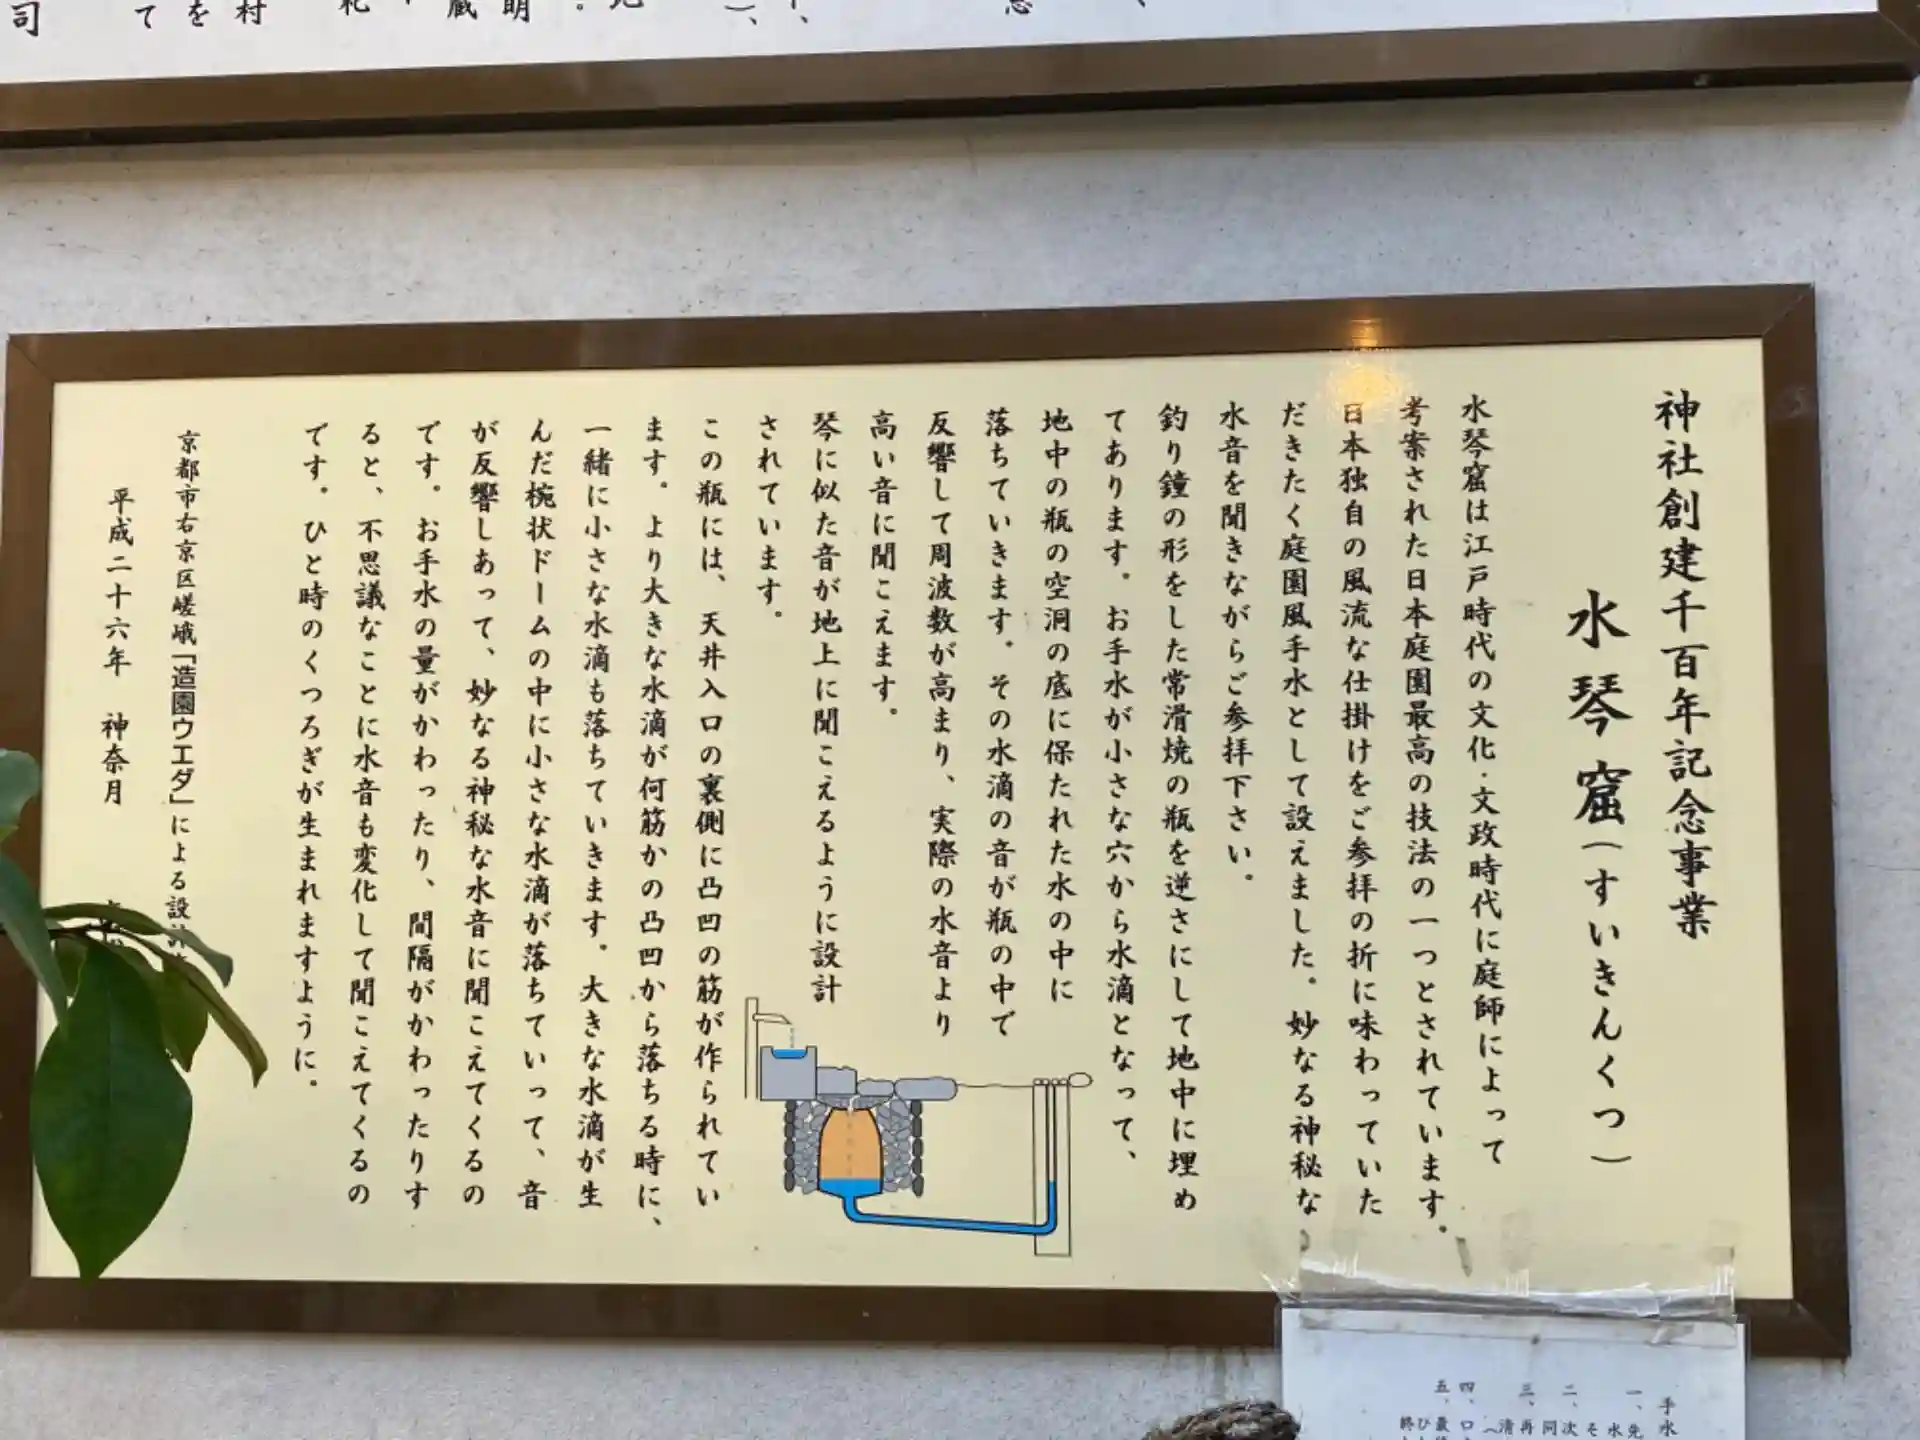 神社創建千百年記念事業
水琴窟(すいきんくつ)
水琴窟は江戸時代の文化・文政時代に庭師によって
考案された日本庭園最高の技法の一つとされています。
日本独自の風流な仕掛けをご参拝の折に味わっていた
だきたく庭園風手水として設えました。妙なる神秘な
水音を聞きながらご参拝下さい。
釣り鐘の形をした常滑焼の瓶を逆さにして地中に埋め
てあります。お手水が小さな穴から水滴となって、
地中の瓶の空洞の底に保たれた水の中に
落ちていきます。その水滴の音が瓶の中で
反響して周波数が高まり、実際の水音より
高い音に聞こえます。
琴に似た音が地上に聞こえるように設計
されています。
この瓶には、天井入口の裏側に凸凹の筋が作られてい
ます。より大きな水滴が何筋かの凸凹から落ちる時に、
一緒に小さな水滴も落ちていきます。大きな水滴が生
んだ椀状ドームの中に小さな水滴が落ちていって、音
が反響しあって、妙なる神秘な水音に聞こえてくるの
です。お手水の量がかわったり、間隔がかわったりす
ると、不思議なことに水音も変化して聞こえてくるの
です。ひと時のくつろぎが生まれますように。
京都市右京区嵯峨「造園ウエダ」による設計
平成二十六年 神奈月
手水
一、先
水
そ
二、次
同
三、再
清
四、口
五、最
ひ
終